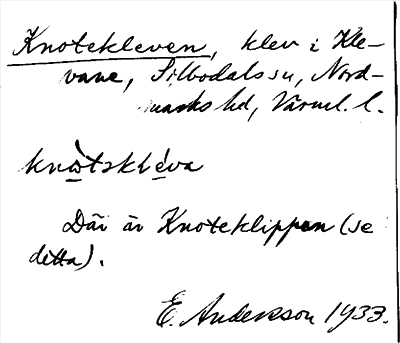 Knotekleven, klev i Kle-
vane, Silbodals sn, Nord-
marks hd, Värml. l.
knòtskléva
Där är Knoteklippen (se
detta).
E. Andersson 1933.